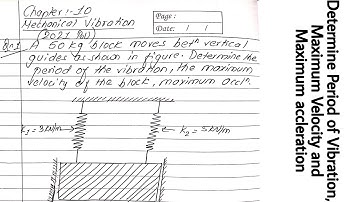 Chapter :- 10
Mechanical Vibration
(2021 Pou)
Page :
Date: / /
Qn.1 A 50 kg block moves betⁿ vertical
guides as shown in figure. Determine the
period of the vibration, the maximum
velocity of the block, maximum accⁿ.
K₁ = 3 kN/m
K₂ = 5 kN/m
Determine Period of Vibration,
Maximum Velocity and
Maximum accleration